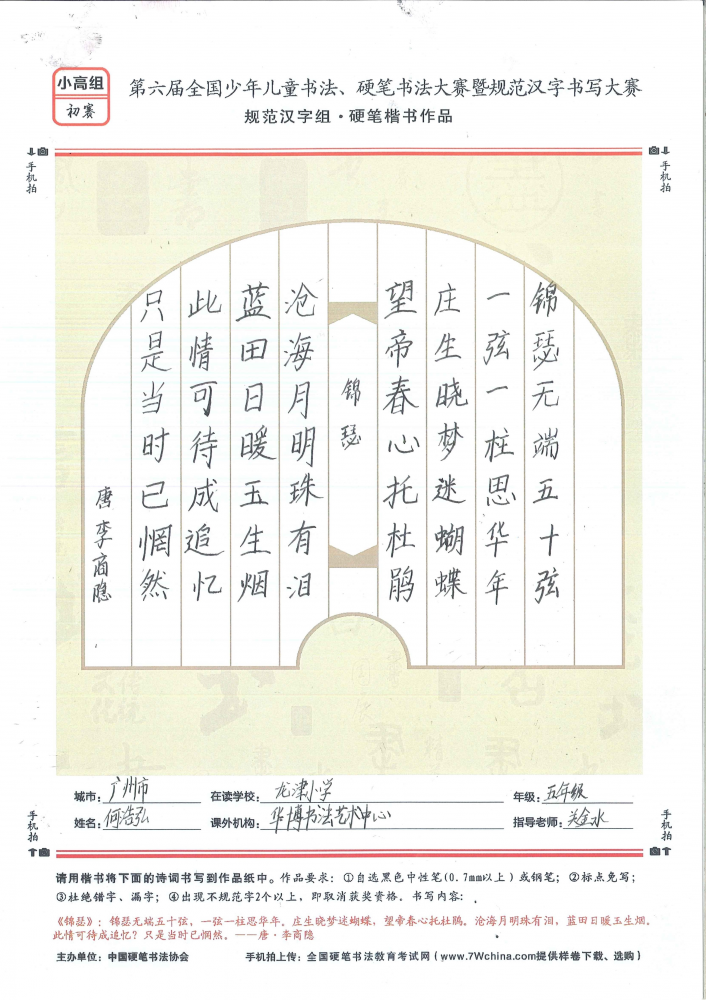 小高组
初赛
第六届全国少年儿童书法、硬笔书法大赛暨规范汉字书写大赛
规范汉字组·硬笔楷书作品
手机拍
手机拍
锦瑟无端五十弦
一弦一柱思华年
庄生晓梦迷蝴蝶
望帝春心托杜鹃
锦瑟
沧海月明珠有泪
蓝田日暖玉生烟
此情可待成追忆
只是当时已惘然
唐李商隐
城市：广州市
在读学校：龙津小学
年级：五年级
姓名：何浩弘
课外机构：华博书法艺术中心
指导老师：关金水
手机拍
手机拍
请用楷书将下面的诗词书写到作品纸中。作品要求：①自选黑色中性笔(0.7mm以上)或钢笔；②标点免写；
③杜绝错字、漏字；④出现不规范字2个以上，即取消获奖资格。书写内容：
《锦瑟》：锦瑟无端五十弦，一弦一柱思华年。庄生晓梦迷蝴蝶，望帝春心托杜鹃。沧海月明珠有泪，蓝田日暖玉生烟。
此情可待成追忆？只是当时已惘然。——唐·李商隐
主办单位：中国硬笔书法协会
手机拍上传：全国硬笔书法教育考试网(www.7Wchina.com提供样卷下载、选购)